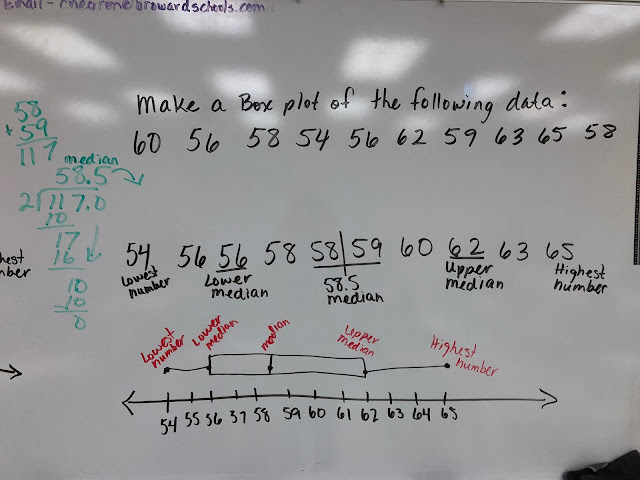 Email - rnegron@browardschools.com
Make a Box plot of the following data:
60 56 58 54 56 62 59 63 65 58
58
+ 59
117
median
58.5
2)117.0
10
17
16
10
- 10
0
54 56 56 58 58|59 60 62 63 65
Lowest number
Lower median
58.5 median
Upper median
Highest number
Lowest number
Lower median
median
Upper median
Highest number
54 55 56 57 58 59 60 61 62 63 64 65